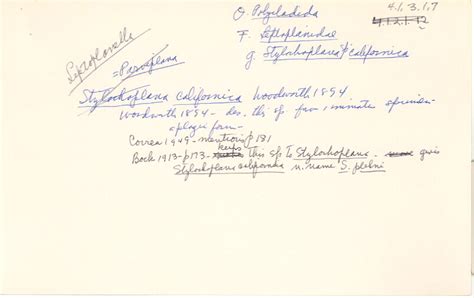 O. Polycladida 4.1.3.1.7
F. Leptoplanidae 4.1.2.1.12
g. Stylochoplana californica
Leptoplanella
= Parviplana
Stylochoplana californica Woodworth 1894
Woodworth 1894 - des. this sp. from 1 immature specimen -
plagic form -
Correa 1949 - mentions p 181
keeps
Bock 1913 - p 173 - this sp to Stylochoplana - gives
Stylochoplana californica n. name S. plehni